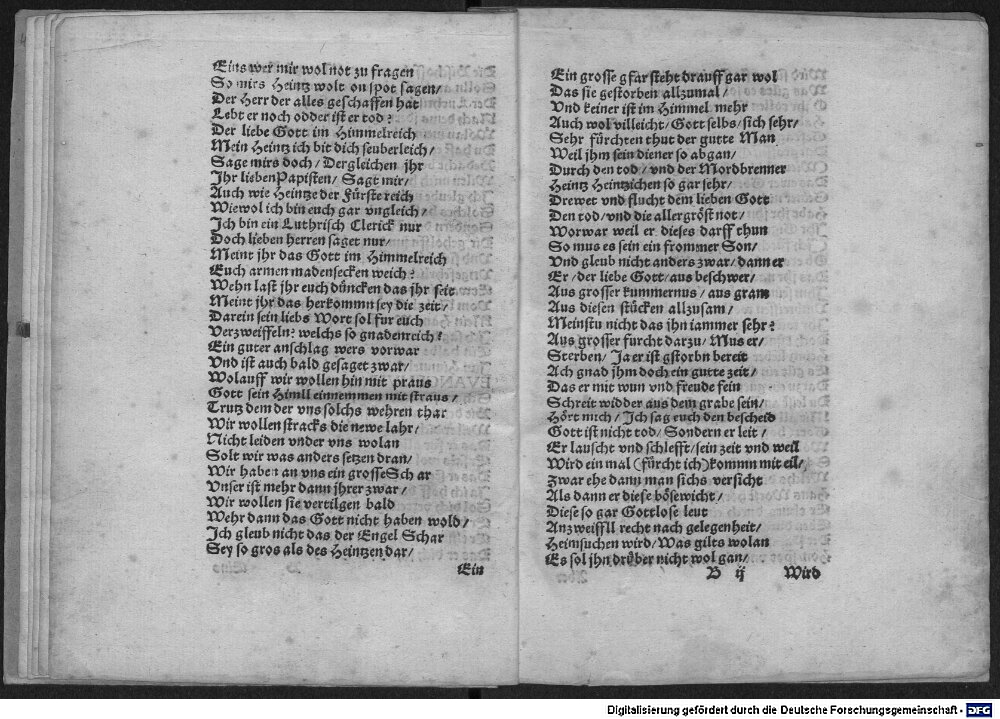 Eins wer mir wol not zu fragen
So mirs Heintz wolt on spot sagen/
Der Herr der alles geschaffen hat
Lebt er noch odder ist er tod?
Der liebe Gott im Himmelreich
Mein Heintz ich bit dich seuberleich/
Sage mirs doch/ Dergleichen jhr
Ihr lieben Papisten/ Sagt mir/
Auch wie Heintze der Fürste reich
Wiewol ich bin euch gar vngleich/
Ich bin ein Luthrisch Clerick nur
Doch lieben herren saget nur/
Meint jhr das Gott im Himmelreich
Euch armen madensecken weich?
Wehn last jhr euch düncken das jhr seit
Meint jhr das herkommn sey die zeit/
Darein sein liebs Wort sol fur euch
Verzweiffeln? welchs so gnadenreich?
Ein guter anschlag wers vorwar
Vnd ist auch bald gesaget zwar/
Wolauff wir wollen hin mit praus
Gott sein Himll einnemmen mit straus/
Trutz dem der vns solchs wehren thar
Wir wollen stracks die newe lahr/
Nicht leiden vnder vns wolan
Solt wir was anders setzen dran/
Wir haben an vns ein grosse Schar
Vnser ist mehr dann jhrer zwar/
Wir wollen sie vertilgen bald
Wehr dann das Gott nicht haben wold/
Ich gleub nicht das der Engel Schar
Sey so gros als des Heintzen dar/
Ein
Ein grosse gfar steht drauff gar wol
Das sie gestorben allzumal/
Vnd keiner ist im Himmel mehr
Auch wol villeicht/ Gott selbs/ sich sehr/
Sehr fürchten thut der gutte Man
Weil jhm sein diener so abgan/
Durch den tod/ vnd der Mordbrenner
Heintz Heintzichen so gar sehr/
Drewet vnd flucht dem lieben Gott
Den tod/ vnd die allergröst not/
Vorwar weil er dieses darff thun
So mus es sein ein frommer Son/
Vnd gleub nicht anders zwar/ dann er
Er/ der liebe Gott/ aus beschwer/
Aus grosser kummernus/ aus gram
Aus diesen stücken allzusam/
Meinstu nicht das ihn iammer sehr?
Aus grosser furcht darzu/ Mus er/
Sterben/ Ja er ist gstorbn bereit
Ach gnad jhm doch ein gutte zeit/
Das er mit wun vnd freude fein
Schreit widder aus dem grabe sein/
Hört mich/ Ich sag euch den bescheid
Gott ist nicht tod/ Sondern er leit/
Er lauscht vnd schlefft/ sein zeit vnd weil
Wird ein mal (fürcht ich) kommn mit eil/
Zwar ehe dann man sichs versicht
Als dann er diese bösewicht/
Diese so gar Gottlose leut
Anzweiffll recht nach gelegenheit/
Heimsuchen wird/ Was gilts wolan
Es sol jhn drüber nicht wol gan/
B ij Wird
Digitalisierung gefördert durch die Deutsche Forschungsgemeinschaft - DFG